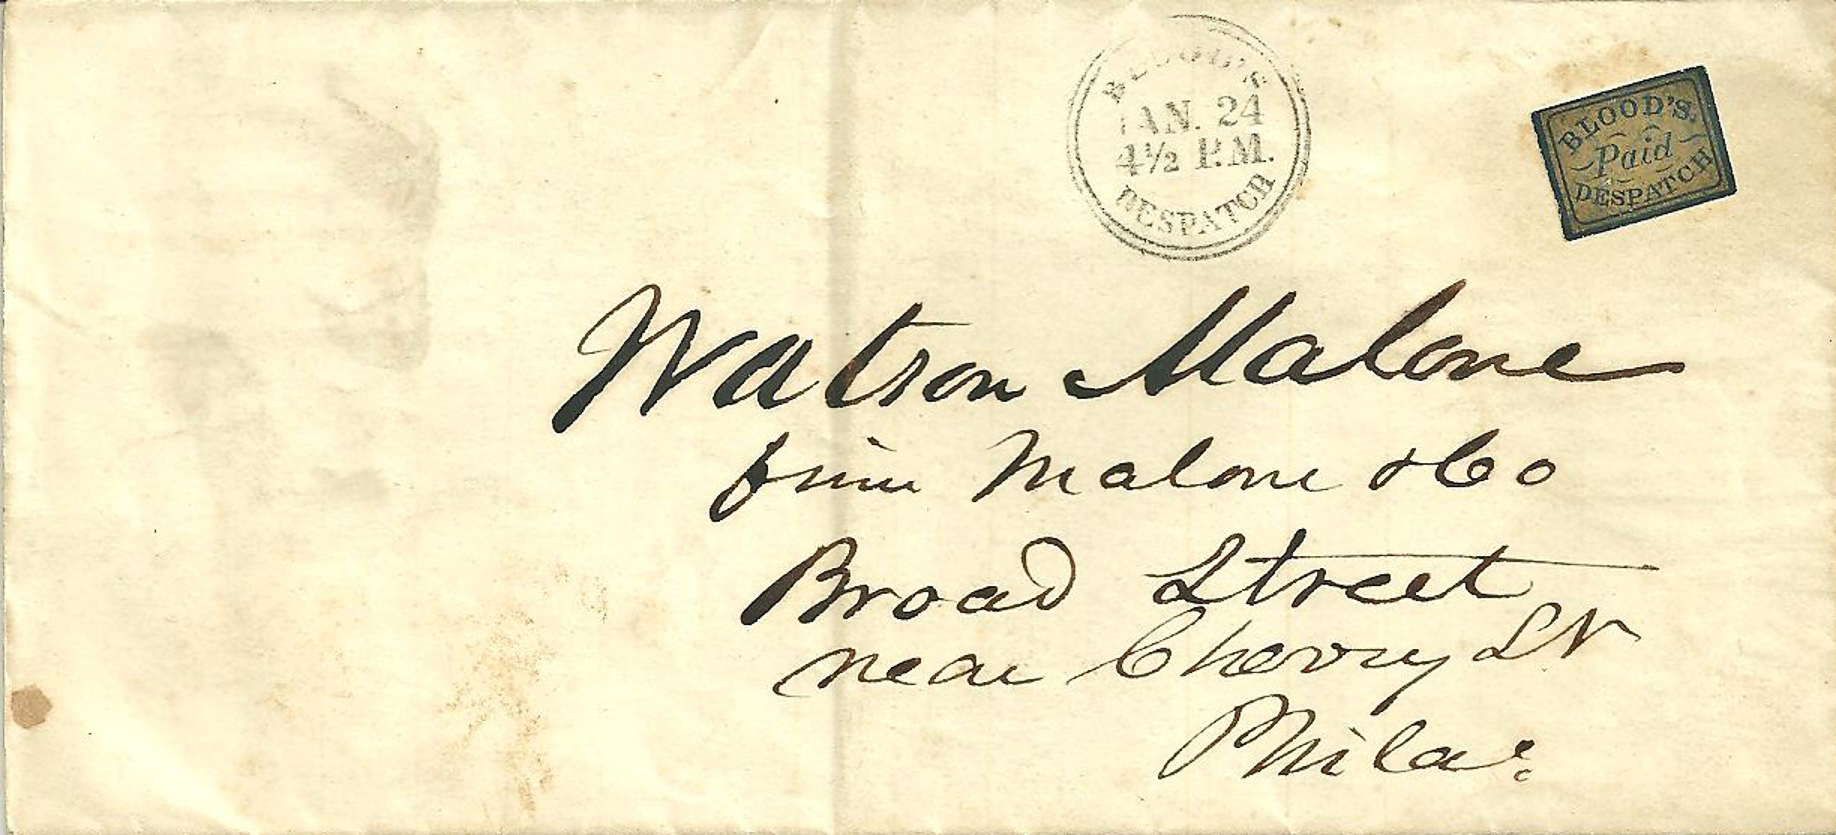 BLOOD'S
JAN. 24
4½ P.M.
DESPATCH
BLOOD'S.
Paid
DESPATCH
Watson Malone
firm Malone & Co
Broad Street
near Cherry St
Phila: